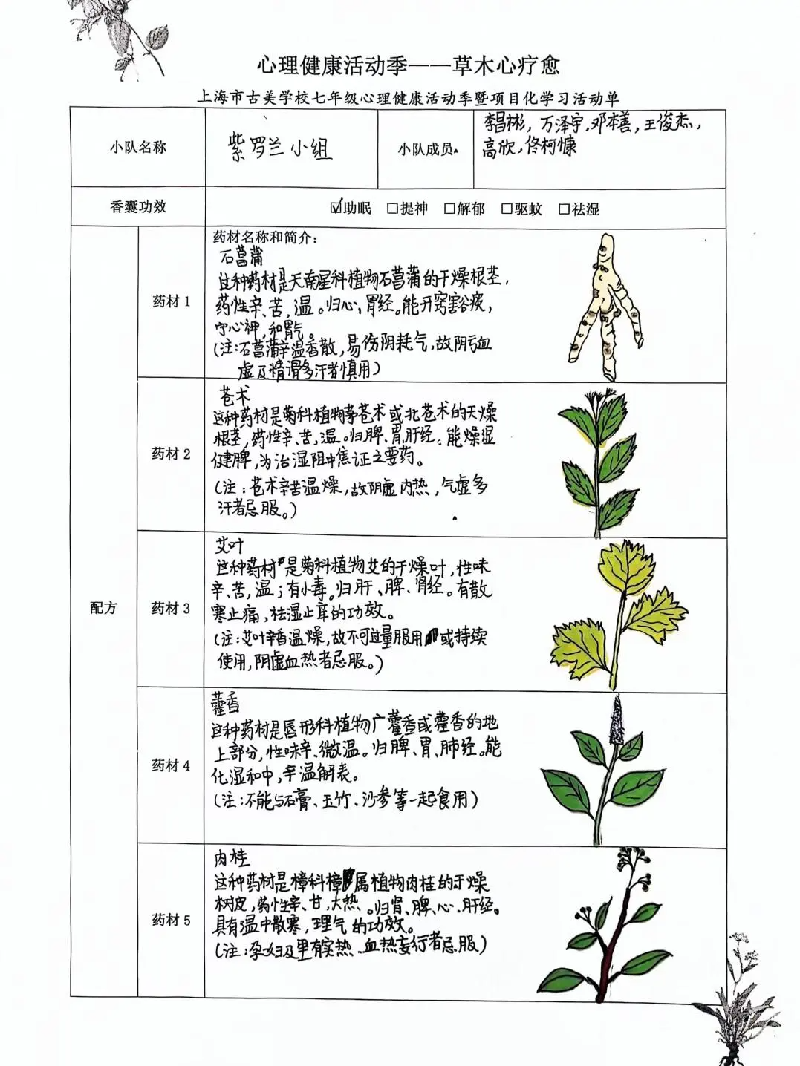 心理健康活动季——草木心疗愈
上海市古美学校七年级心理健康活动季暨项目化学习活动单
小队名称 紫罗兰小组 小队成员
李昌彬，万泽宇，邓本善，王俊杰，
高欣，佟柯慷
香囊功效 ☑助眠 □提神 □解郁 □驱蚊 □祛湿
配方
药材1
药材名称和简介：
石菖蒲
这种药材是天南星科植物石菖蒲的干燥根茎，
药性辛、苦，温。归心、胃经。能开窍豁痰，
宁心神，和胃气。
(注：石菖蒲辛温香散，易伤阴耗气，故阴亏血
虚及精滑多汗者慎用)
药材2
苍术
这种药材是菊科植物茅苍术或北苍术的干燥
根茎，药性辛、苦，温。归脾、胃、肝经。能燥湿
健脾，为治湿阻中焦证主要药。
(注：苍术辛苦温燥，故阴虚内热，气虚多
汗者忌服。)
药材3
艾叶
这种药材是菊科植物艾的干燥叶，性味
辛、苦，温；有小毒。归肝、脾、肾经。有散
寒止痛，祛湿止痒的功效。
(注：艾叶辛香温燥，故不可过量服用或持续
使用，阴虚血热者忌服。)
药材4
藿香
这种药材是唇形科植物广藿香或藿香的地
上部分，性味辛、微温。归脾、胃、肺经。能
化湿和中，辛温解表。
(注：不能与石膏、玉竹、沙参等一起食用)
药材5
肉桂
这种药材是樟科樟属植物肉桂的干燥
树皮，药性辛、甘，大热。归肾、脾、心、肝经。
具有温中散寒，理气的功效。
(注：孕妇及里有实热、血热妄行者忌服)